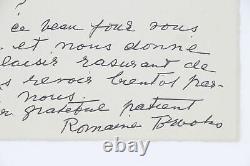 ?
ce beau four vous
et nous donne
laisir rasurant de
s revoir bientot par-
nous.
r grateful patient
Romaine Brooks